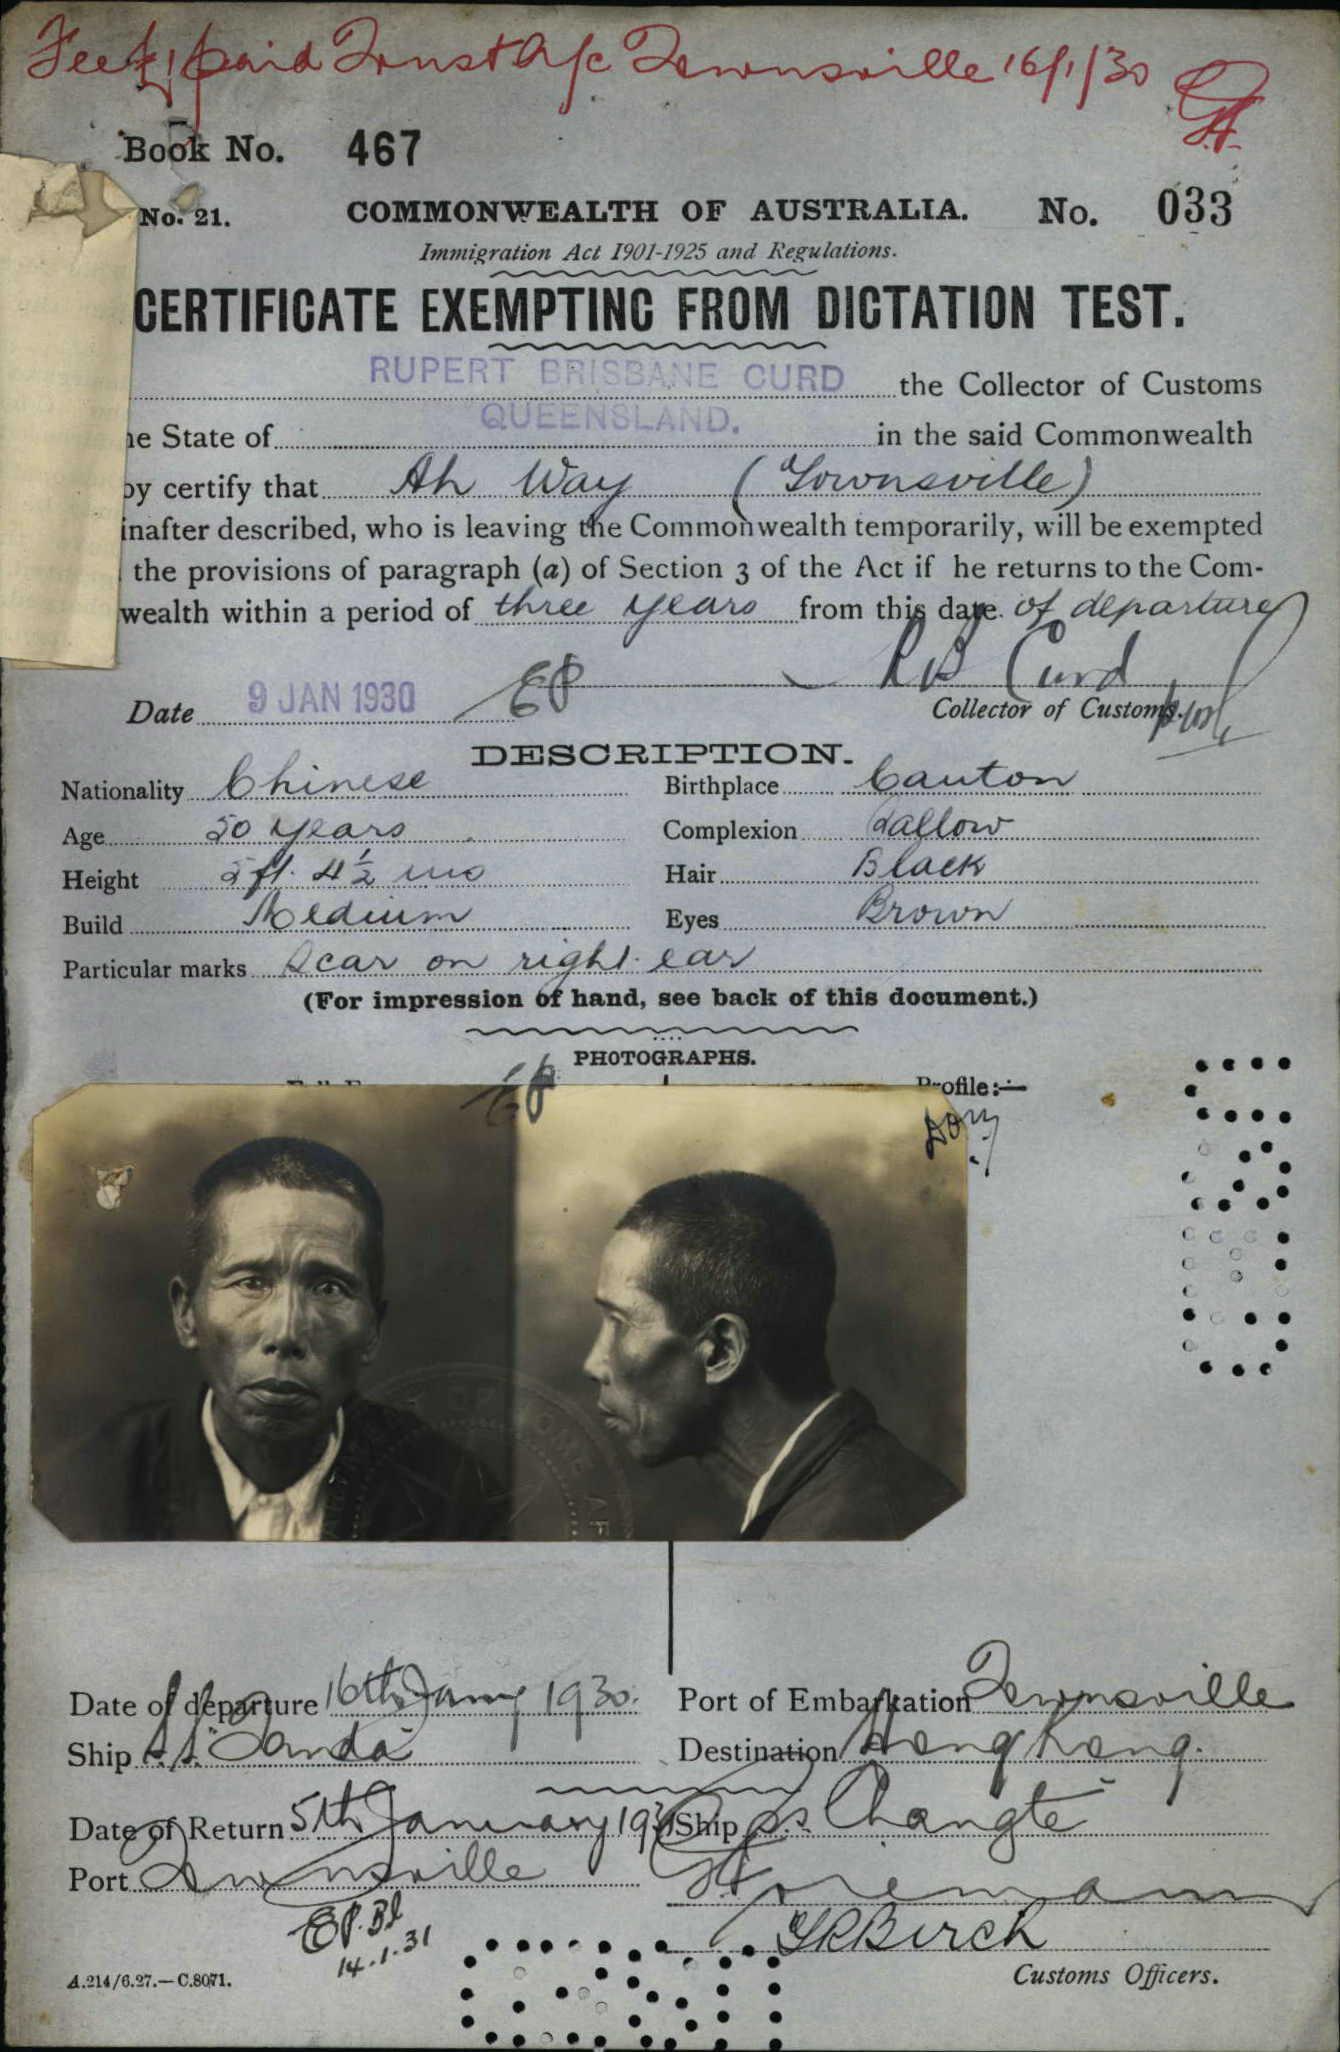 Fee £1 paid Trust A/c Townsville 16/1/30
Book No. 467
No. 21. COMMONWEALTH OF AUSTRALIA. No. 033
Immigration Act 1901-1925 and Regulations.
CERTIFICATE EXEMPTING FROM DICTATION TEST.
RUPERT BRISBANE CURD the Collector of Customs
he State of QUEENSLAND. in the said Commonwealth
by certify that Ah Way (Townsville)
inafter described, who is leaving the Commonwealth temporarily, will be exempted
the provisions of paragraph (a) of Section 3 of the Act if he returns to the Com-
wealth within a period of three years from this date of departure
R B Curd
Date 9 JAN 1930 EP Collector of Customs.
DESCRIPTION.
Nationality Chinese Birthplace Canton
Age 50 years Complexion Sallow
Height 5 ft. 4½ ins Hair Black
Build Medium Eyes Brown
Particular marks Scar on right ear
(For impression of hand, see back of this document.)
PHOTOGRAPHS.
EP Profile:—
Date of departure 16th Jany 1930. Port of Embarkation Townsville
Ship S.S. Tanda Destination Hong Kong.
Date of Return 5th January 1931 Ship s.s. Changte
Port Townsville
EP. Bl YRBirch
14.1.31
A.214/6.27.—C.8071. Customs Officers.